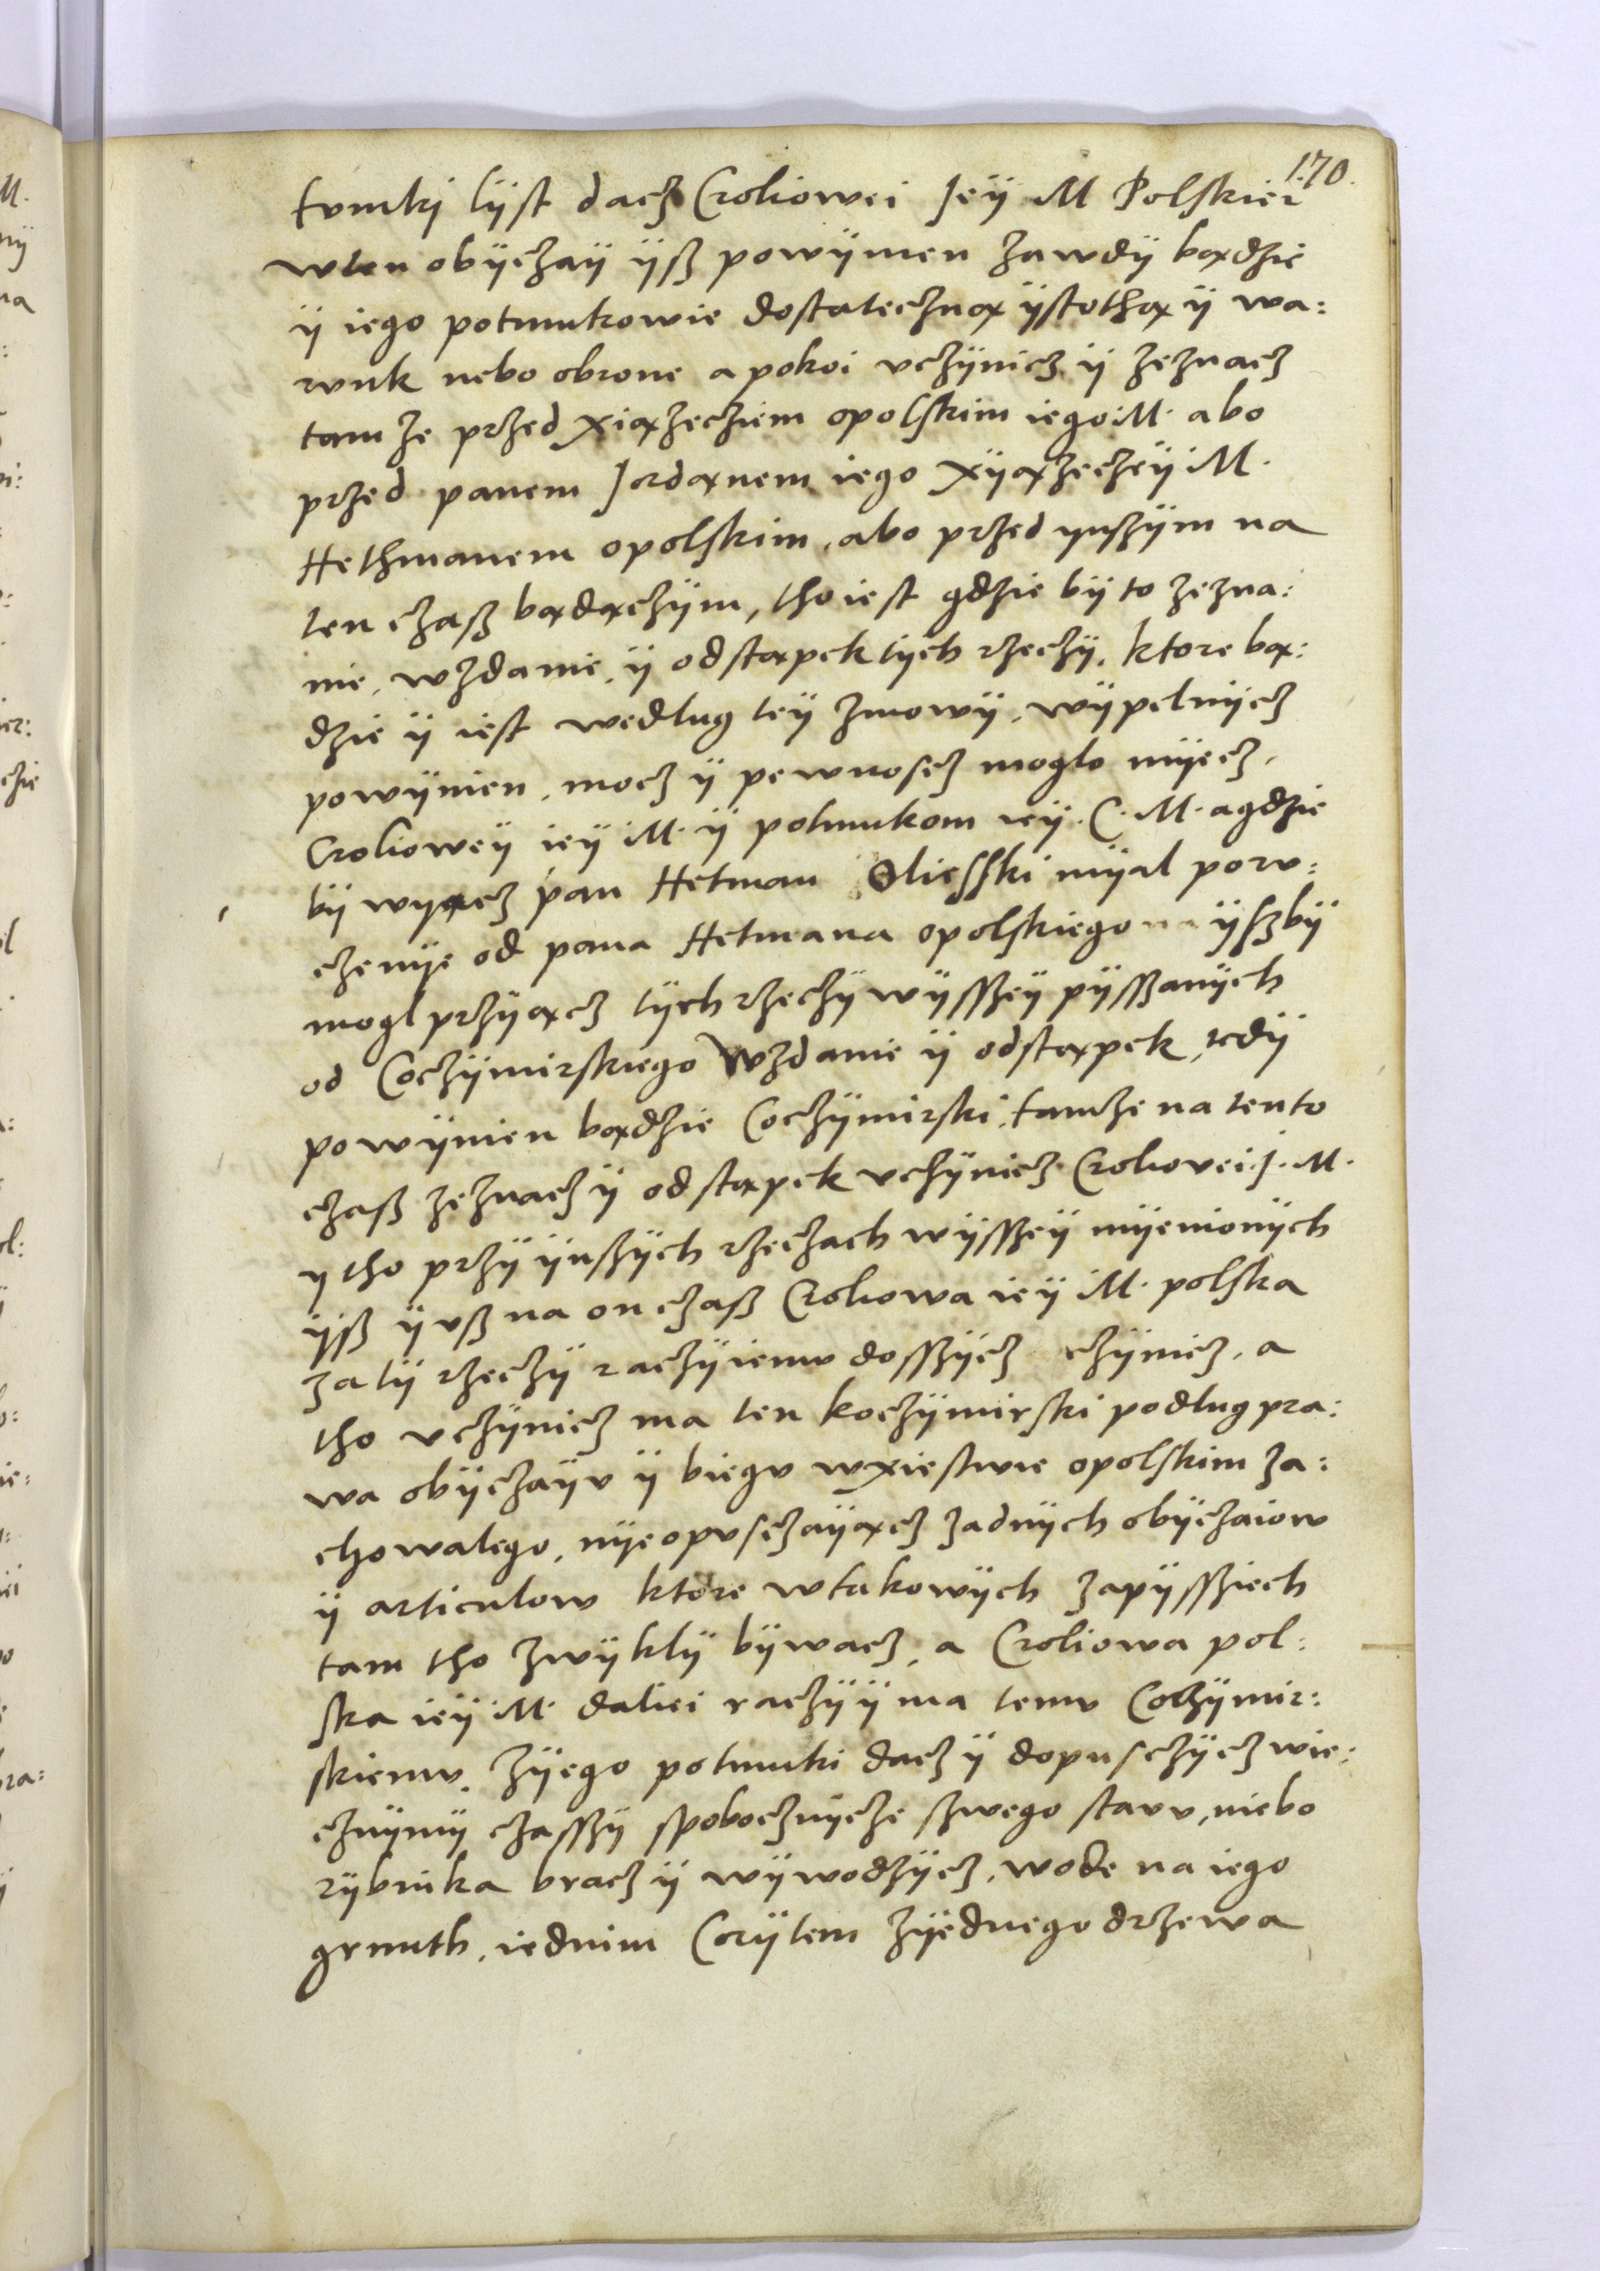 170.
tvnki lÿst dacz Croliowei Jeÿ M Polskiei
wten obÿczaÿ ÿß powÿnien zawdÿ bądzie
ÿ iego potmukowie dostateczną ÿstothą ÿ wa:
runk nebo obrone a pokoi vczÿnicz ÿ zeznacz
tamze przed xiązecziem opolskim iego M. abo
przed panem Jordąnem iego Xÿązeczeÿ M.
Hethmanem opolskim, abo przed ynszÿm na
ten czaß bądączÿm, tho iest gdzie bÿ to zezna:
nie, wzdanie, ÿ odstąpek tÿch rzeczÿ, ktore bą:
dzie ÿ iest wedlug teÿ zmowÿ, wÿpelnÿcz
powÿnien, mocz ÿ pewnoscz moglo mÿecz,
Crolioweÿ ieÿ M. ÿ potmukom ieÿ. C. M. a gdzie
bÿ wyącz pan Hetman Oliesski mÿal porv:
czenÿe od pana Hetmana opolskiego ÿszbÿ
mogl przÿącz tÿch rzeczÿ wÿsszeÿ pÿsszanÿch
od Coczÿmirskiego Wzdanie ÿ odstąpek, tedÿ
powÿnien bądzie Coczÿmirski, tamze na tento
czaß zeznacz ÿ odstąpek vczÿnicz Croliovei J. M.
y tho przÿ ÿnszÿch rzeczach wÿsszeÿ mÿenionÿch
ÿß ÿvß na on czaß Croliowa ieÿ M. polska
za tÿ rzeczÿ raczÿ iemv dosszÿcz czÿnicz, a
tho vczÿnicz ma ten koczÿmirski podlug pra:
wa obÿczaÿv ÿ biegv wxiestwie opolskim za:
chowalego, nÿeopvsczaÿącz zadnÿch obÿczaiow
ÿ articulow ktore wtakowÿch zapÿssziech
tam tho zwÿklÿ bÿwacz, a Croliowa pol:
ska ieÿ M. daliei raczÿ ÿ ma temv Coczÿmir:
skiemv, zÿego potmuki dacz ÿ dopusczÿcz wie:
cznÿmÿ czasszÿ spobocznÿcze szwego stavv, niebo
rÿbnika bracz ÿ wÿwodzÿcz, wode na iego
grunth, iednim Corÿtem zÿednego drzewa